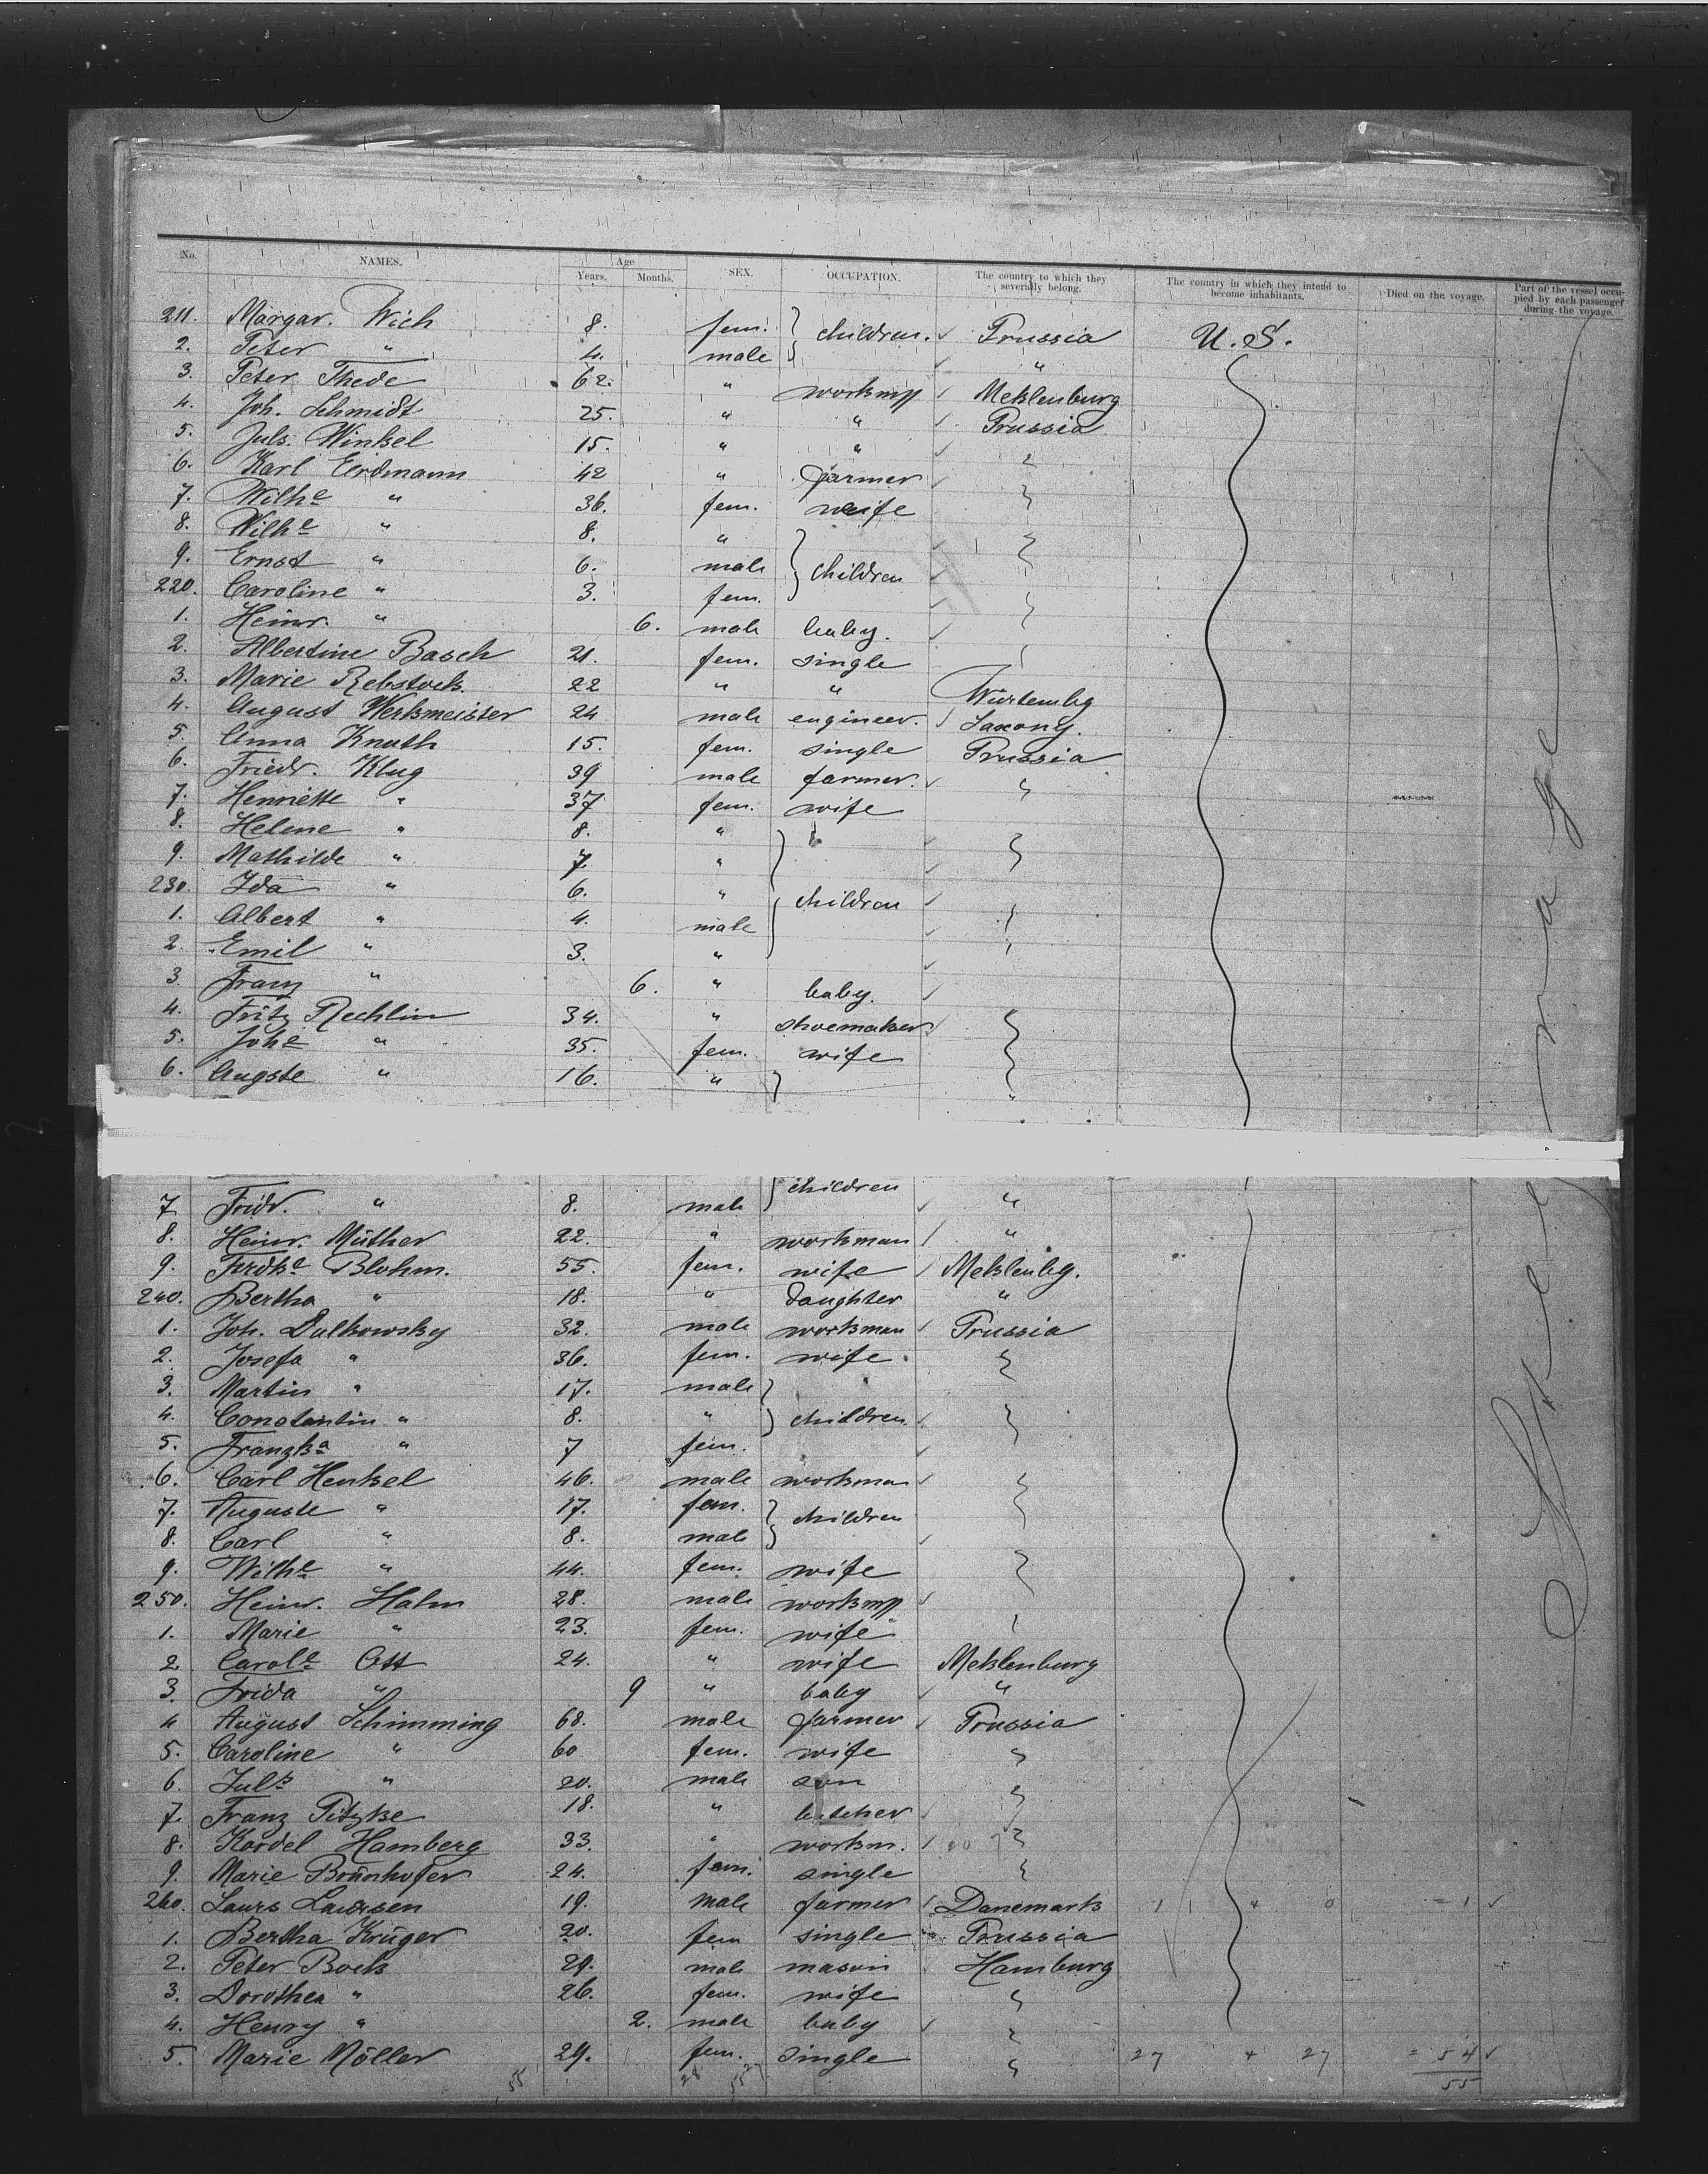 No. NAMES. Age Years. Months. SEX. OCCUPATION. The country to which they severally belong. The country in which they intend to become inhabitants. Died on the voyage. Part of the vessel occupied by each passenger during the voyage.
211. Margar. Wich 8. fem. children. Prussia U.S.
2. Peter " 4. male "
3. Peter Thede 62. " workmn Meklenburg
4. Joh. Schmidt 25. " " Prussia
5. Juls. Winkel 15. " "
6. Karl Erdmann 42 " farmer
7. Wilhe " 36. fem. wife
8. Wilhe " 8. "
9. Ernst " 6. male children
220. Caroline " 3. fem.
1. Heinr. " 6. male baby.
2. Albertine Basch 21. fem. single
3. Marie Rebstock. 22 " " Würtembg
4. August Werkmeister 24 male engineer. Saxony.
5. Anna Knuth 15. fem. single Prussia
6. Friedr. Klug 39 male farmer. "
7. Henriette " 37 fem. wife
8. Helene " 8. "
9. Mathilde " 7. "
230. Ida " 6. " children
1. Albert " 4. male
2. Emil " 3. "
3. Franz " 6. " baby.
4. Fritz Rechlin 34. " shoemaker
5. Johe " 35. fem. wife
6. Augste " 16. " "
children
7 Fridr. " 8. male "
8. Heinr. Müther 22. " workman "
9. Frdke Blohm. 55. fem. wife Meklenbg.
240. Bertha " 18. " daughter "
1. Joh. Dulkowsky 32. male workman Prussia
2. Josefa " 36. fem. wife "
3. Martin " 17. male
4. Constantin " 8. " children
5. Franzka " 7 fem.
6. Carl Henkel 46. male workman
7. Auguste " 17. fem. children
8. Carl " 8. male
9. Wilhe " 44. fem. wife
250. Heinr. Hahn 28. male workmn
1. Marie " 23. fem. wife
2. Carole Ott 24. " wife Meklenburg
3. Frida " 9 " baby "
4 August Schimming 68. male farmer Prussia
5. Caroline " 60 fem. wife "
6. Juls " 20. male son
7. Franz Pitzke 18. " butcher
8. Kordel Hamberg 33. " workm.
9. Marie Brünhofer 24. fem. single
260. Laurs Laursen 19. male farmer Danemark 1 + 0 = 1
1. Bertha Krüger 20. fem single Prussia
2. Peter Bock 29. male mason Hamburg
3. Dorothea " 26. fem. wife "
4. Henry " 2. male baby
5. Marie Möller 29. fem. single " 27 + 27 = 54
55 28 55
Steerage